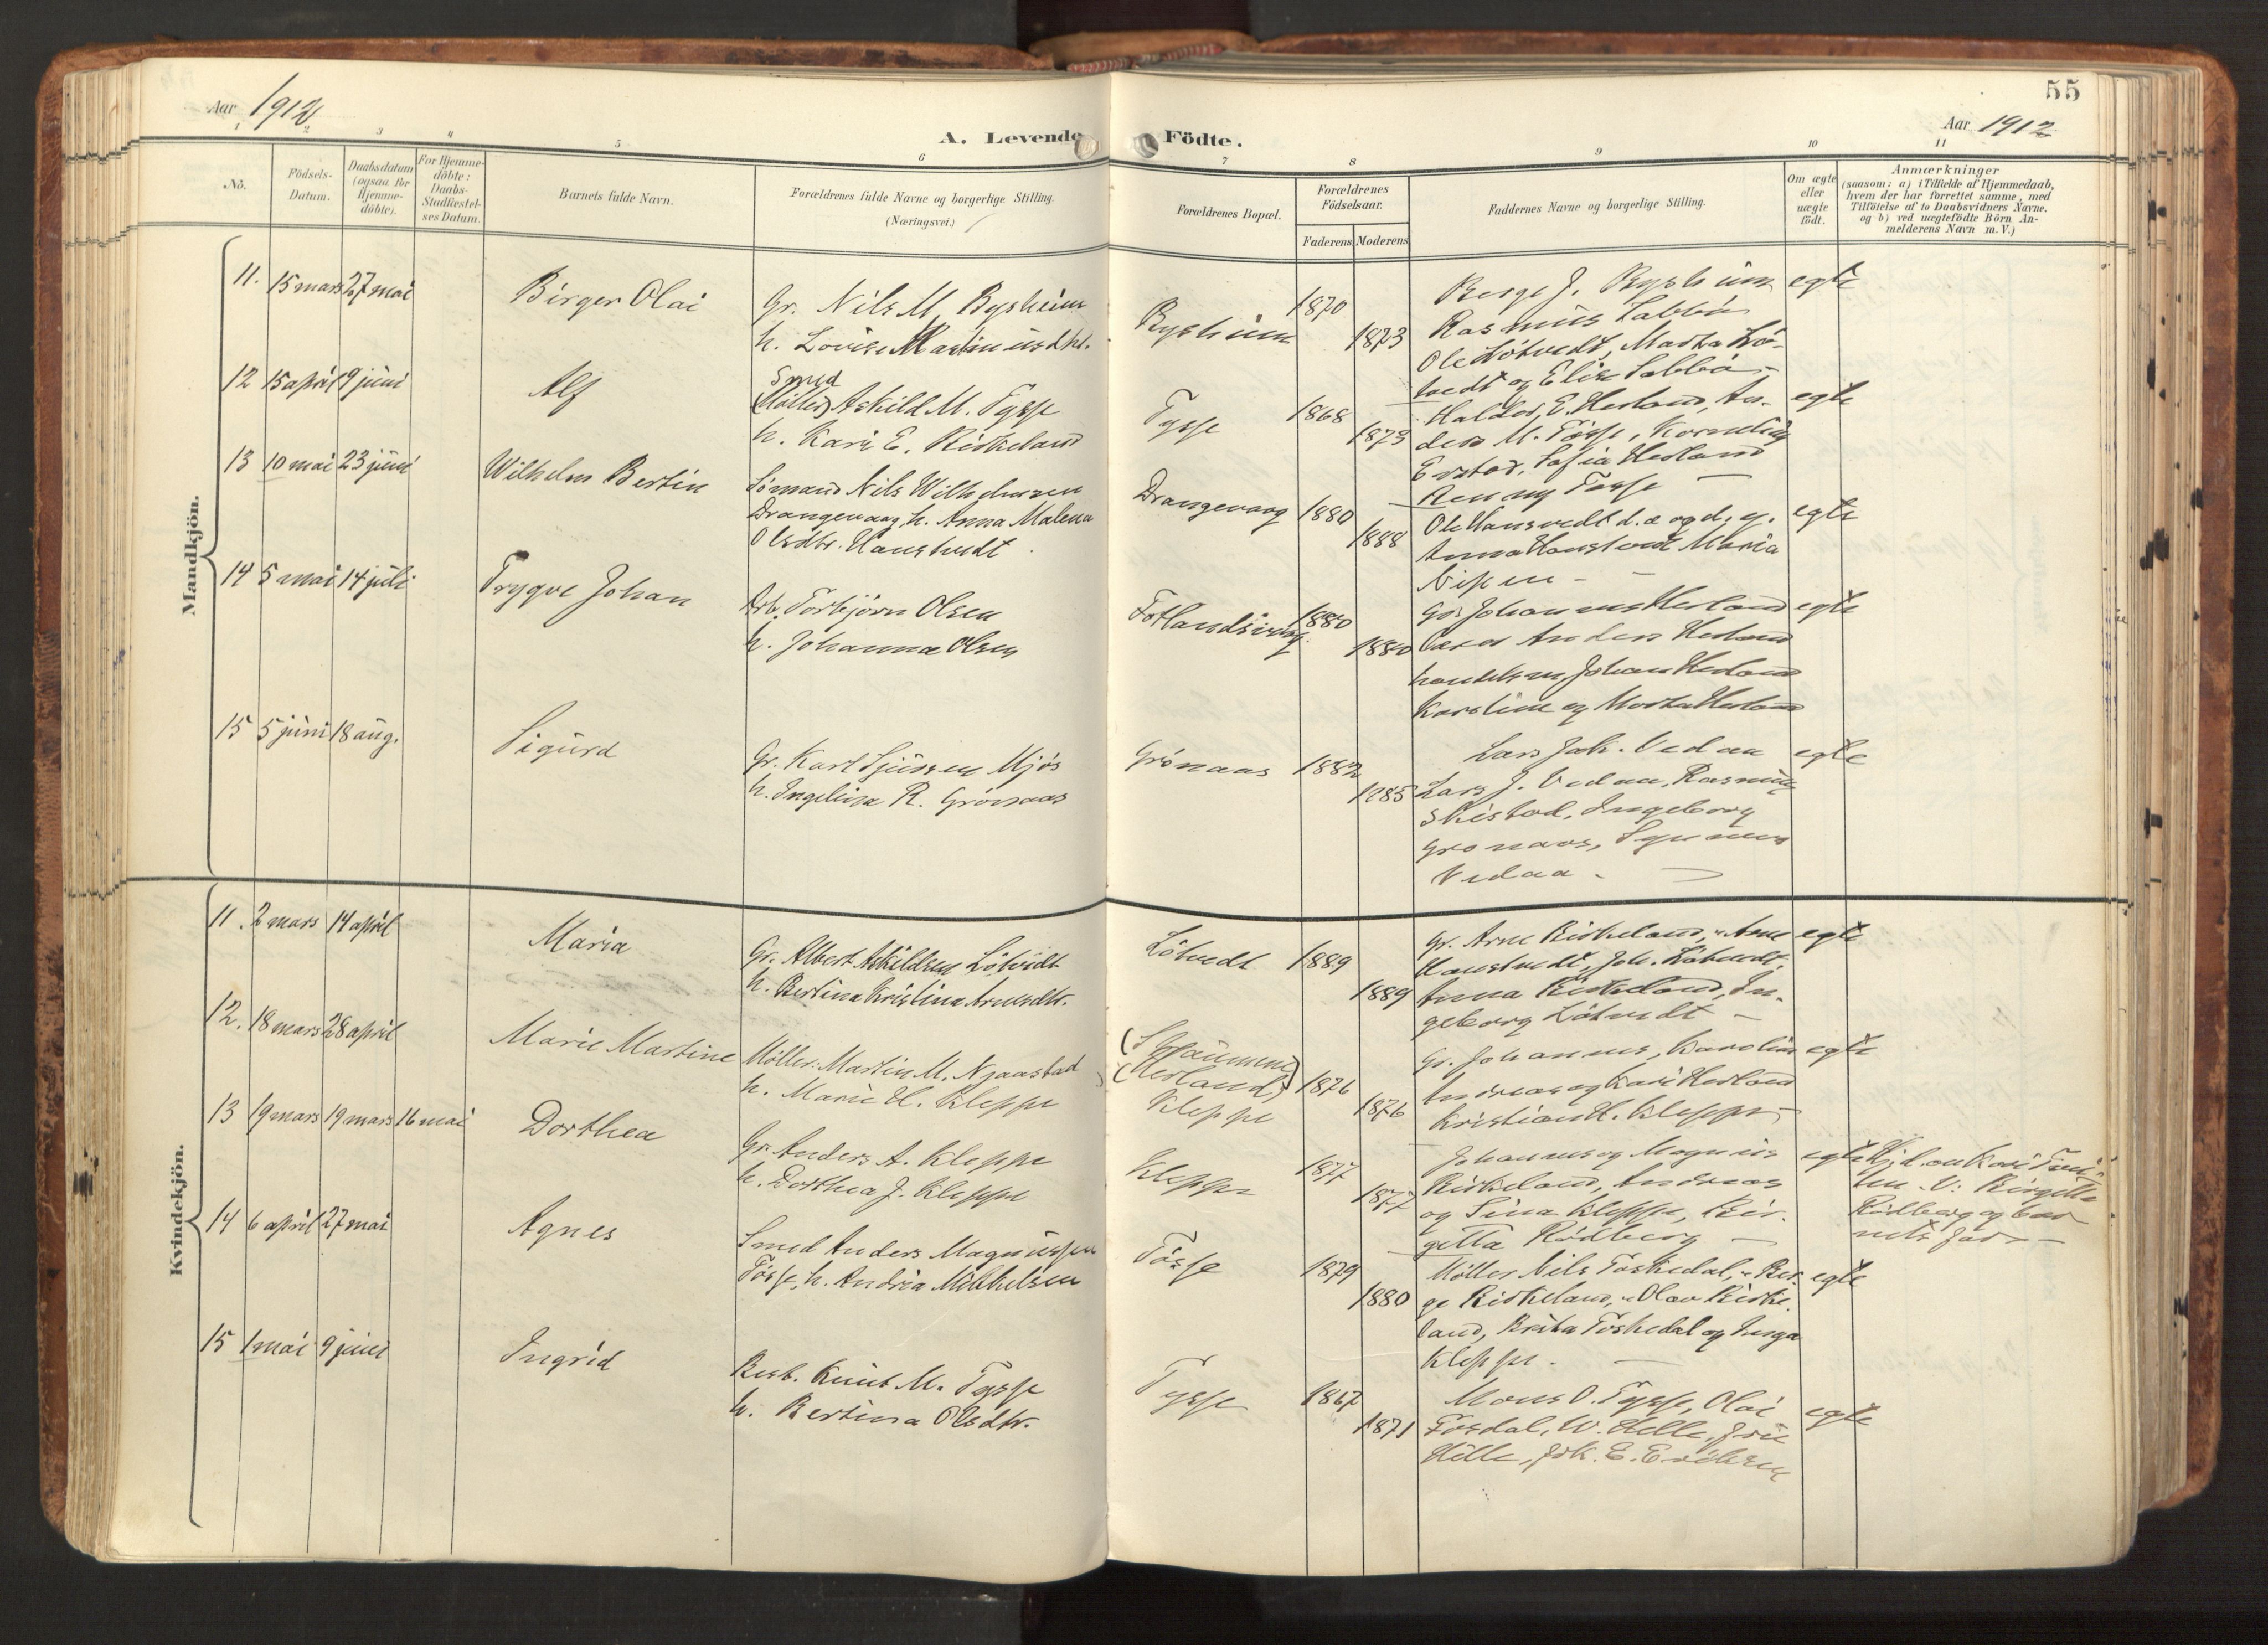 55
Aar 1912
Aar 1912
A. Levende Födte.
1 2 3 4 5 6 7 8 9 10 11
No.
Födsels-
Datum.
Daabsdatum
(ogsaa for
Hjemme-
döbte).
For Hjemme-
döbte:
Daabs-
Stadfæstel-
ses Datum.
Barnets fulde Navn.
Forældrenes fulde Navne og borgerlige Stilling.
(Næringsvei.)
Forældrenes Bopæl.
Forældrenes
Födselsaar.
Faderens Moderens
Faddernes Navne og borgerlige Stilling.
Om ægte
eller
uægte
födt.
Anmærkninger
(saasom: a) i Tilfælde af Hjemmedaab,
hvem der har forrettet samme, med
Tilföielse af to Daabsvidners Navne,
og b) ved uægtefödte Börn An-
melderens Navn m. V.)
Mandkjön.
11. 15 mars 27 mai
Birger Olai
Gr. Nils M. Bysheim
h. Lovise Martinusdtr.
Bysheim
1870
1873
Berge J. Bysheim
Rasmus Sabbö
Ole Lötvedt, Marta Lö-
tvedt og Elise Sabbö
egte
12 15 april 9 juni
Alf
Smed
(Möller) Askild M. Tysse
h. Kari E. Birkeland
Tysse
1868
1873
Haldor E. Herland, An-
ders M. Tösse, Kornelius
Erstad, Sofia Herland
Tösse
egte
13 10 mai 23 juni
Wilhelm Bertin
Sömand Nils Wilhelmsen
Drangevaag h. Anna Malena
Olsdtr. Haustvedt
Drangevaag
1880
1888
Ole Hausvedt d. æ og d. y.
Anna Haustvedt Maria
Nipen
egte
14 5 mai 14 juli
Trygve Johan
Arb. Torbjörn Olsen
h. Johanna Olsen
Fotlandsvaag
1880
1880
Gr. Johannes Herland
Anders Herland
handelsm. Johan Herland
Karoline og Marta Herland
egte
15 5 juni 18 aug.
Sigurd
Gr. Karl Sjursen Mjös
h. Ingelina R. Grönaas
Grönaas
1882
1885
Lars Joh. Vedaa
Lars J. Vedaa, Rasmus
Skistad, Ingeborg
Gronaas, Synneva
Vedaa
egte
Kvindekjön.
11. 2 mars 14 april
Maria
Gr. Albert Askildsen Lötvedt
h. Bertina Kristina Arnesdtr.
Lötvedt
1889
1889
Gr. Arne Birkeland, " Arne
Haustvedt, Joh. Lötvedt,
Anna Birkeland, In-
geborg Lötvedt
egte
12. 18 mars 28 april
Marie Martine
Möller Martin M. Njaastad
h. Marie H. Kleppe
(Herland)
Kleppe
1876
1876
Gr. Johannes, Karoline
Andreas og Kari Herland
Kristian H. Kleppe
egte
13 19 mars 19 mars 16 mai
Dorthea
Gr. Anders A. Kleppe
h. Dorthea J. Kleppe
Kleppe
1877
1877
Johannes og Magnus
Birkeland, Andreas
og Sina Kleppe, Bir-
gitta Rödberg
egte
Birgitta
Rödberg og bar-
nets far
14 6 april 27 mai
Agnes
Smed Anders Magnussen
Tösse, h. Andrea Mikkelsen
Tösse
1879
1880
Möller Nils Toskedal, " Ber-
ge Birkeland, " Olav Birke-
land, Brita Toskedal og Inga
Kleppe.
egte
15 1 mai 9 juni
Ingrid
Besb. Knut M. Tysse
h. Bertina Olsdtr.
Tysse
1867
1871
Mons O. Tysse, Olai
Tösdal, W. Helle,
Hille, Joh. E. Eriksen
egte